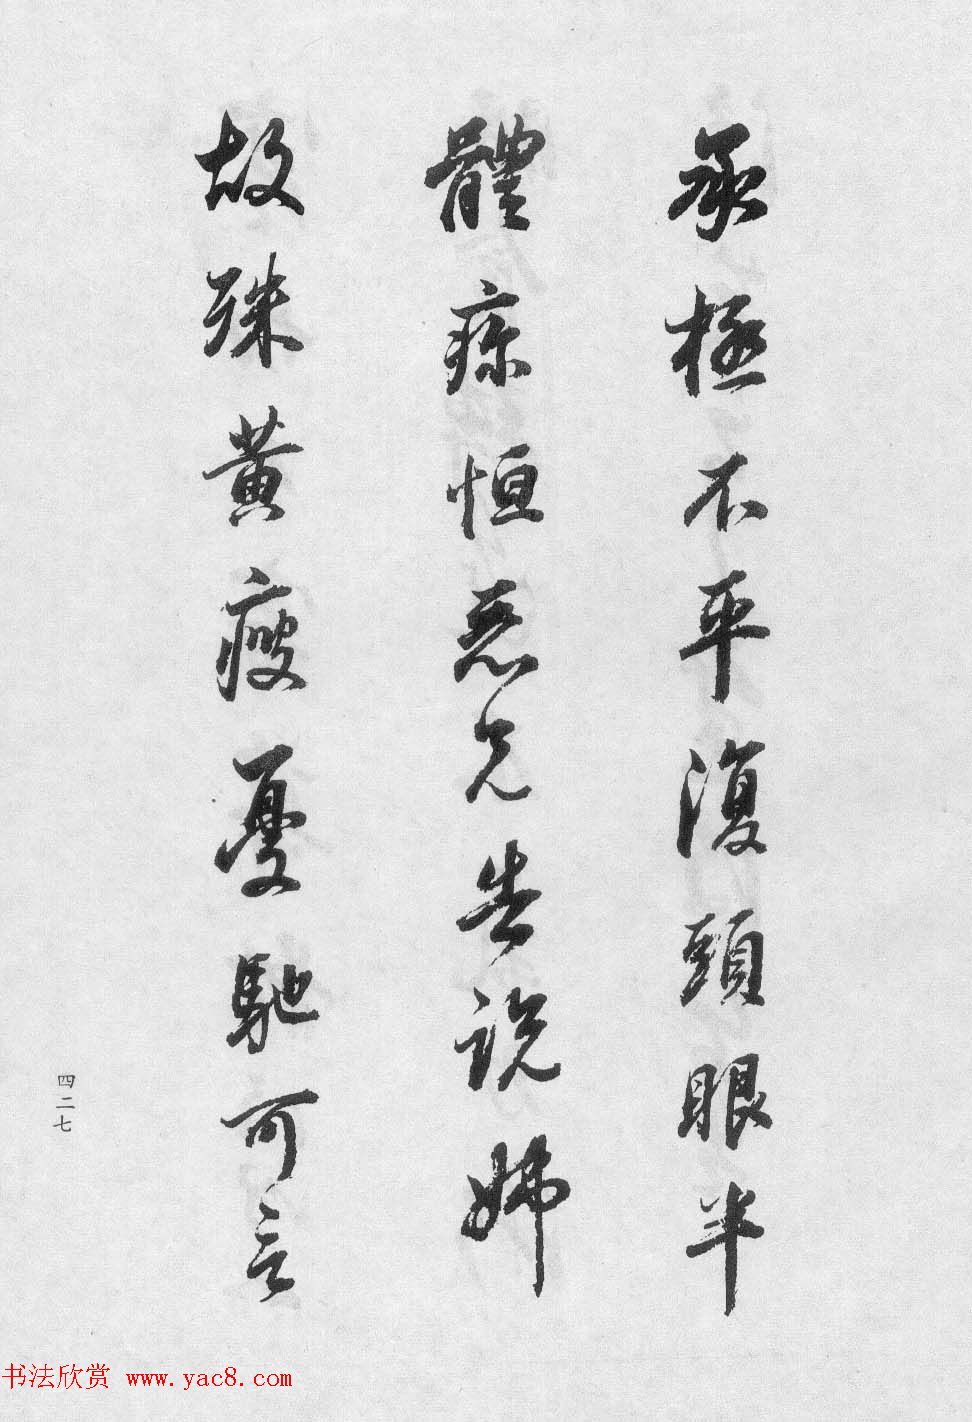 承極不平復頭眼半
體疼恒惡兄告說姊
故殊黃瘦憂馳可言
四二七
书法欣赏 www.yac8.com